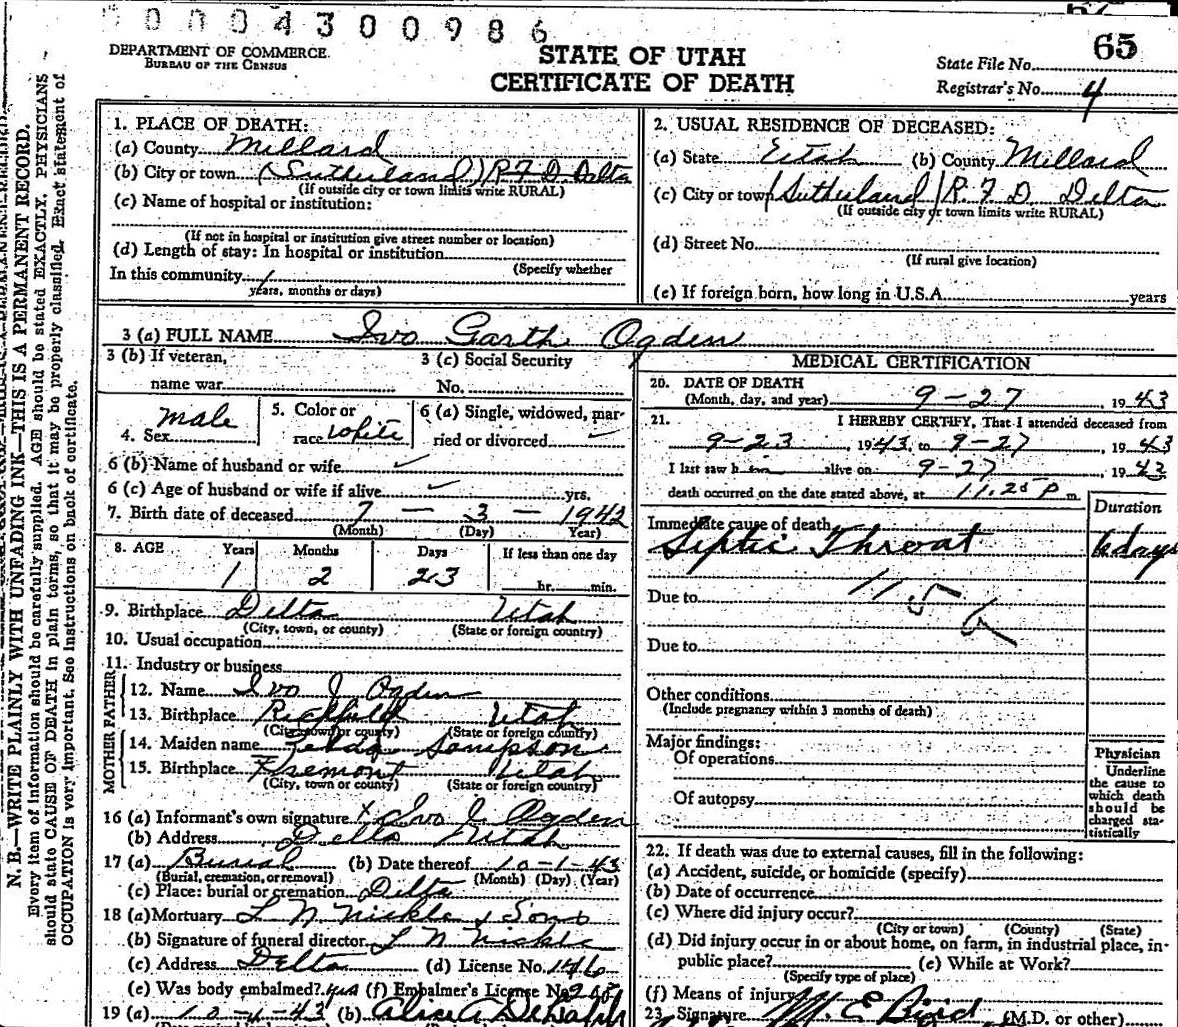 0004300986
DEPARTMENT OF COMMERCE
BUREAU OF THE CENSUS
STATE OF UTAH
CERTIFICATE OF DEATH
State File No. 65
Registrar's No. 4
N. B.—WRITE PLAINLY WITH UNFADING INK—THIS IS A PERMANENT RECORD.
Every item of information should be carefully supplied. AGE should be stated EXACTLY, PHYSICIANS
should state CAUSE OF DEATH in plain terms, so that it may be properly classified. Exact statement of
OCCUPATION is very important. See instructions on back of certificate.
1. PLACE OF DEATH:
(a) County Millard
(b) City or town (Sutherland) R F D Delta
(If outside city or town limits write RURAL)
(c) Name of hospital or institution:
(If not in hospital or institution give street number or location)
(d) Length of stay: In hospital or institution
(Specify whether
In this community 1
years, months or days)
2. USUAL RESIDENCE OF DECEASED:
(a) State Utah (b) County Millard
(c) City or town (Sutherland) R. F. D. Delta
(If outside city or town limits write RURAL)
(d) Street No.
(If rural give location)
(e) If foreign born, how long in U.S.A. years
3 (a) FULL NAME Ivo Garth Ogden
3 (b) If veteran, 3 (c) Social Security
name war No.
4. Sex male 5. Color or race white 6 (a) Single, widowed, married or divorced
6 (b) Name of husband or wife
6 (c) Age of husband or wife if alive yrs.
7. Birth date of deceased 7 - 3 - 1942
(Month) (Day) Year)
8. AGE Years Months Days If less than one day
1 2 23 hr. min.
9. Birthplace Delta Utah
(City, town, or county) (State or foreign country)
10. Usual occupation
11. Industry or business
FATHER
12. Name Ivo J Ogden
13. Birthplace Richfield Utah
(City, town or county) (State or foreign country)
MOTHER
14. Maiden name Sampson
15. Birthplace Fremont Utah
(City, town or county) (State or foreign country)
16 (a) Informant's own signature x Ivo J. Ogden
(b) Address Delta Utah
17 (a) Burial (b) Date thereof 10-1-43
(Burial, cremation, or removal) (Month) (Day) (Year)
(c) Place: burial or cremation Delta
18 (a) Mortuary L N Nickle & Sons
(b) Signature of funeral director L N Nickle
(c) Address Delta (d) License No. 146
(e) Was body embalmed? yes (f) Embalmer's License No.
19 (a) 10-4-43 (b) Alice A
MEDICAL CERTIFICATION
20. DATE OF DEATH
(Month, day, and year) 9-27, 1943
21. I HEREBY CERTIFY, That I attended deceased from
9-23, 1943, to 9-27, 1943
I last saw him alive on 9-27, 1943
death occurred on the date stated above, at 11.25 P m.
Duration
Immediate cause of death
Septic Throat 6 days
115 b
Due to
Due to
Other conditions
(Include pregnancy within 3 months of death)
Major findings:
Of operations
Of autopsy
Physician
Underline
the cause to
which death
should be
charged sta-
tistically
22. If death was due to external causes, fill in the following:
(a) Accident, suicide, or homicide (specify)
(b) Date of occurrence
(c) Where did injury occur?
(City or town) (County) (State)
(d) Did injury occur in or about home, on farm, in industrial place, in-
public place? (e) While at Work?
(Specify type of place)
(f) Means of injury
23. Signature M. E. Bird (M.D. or other)